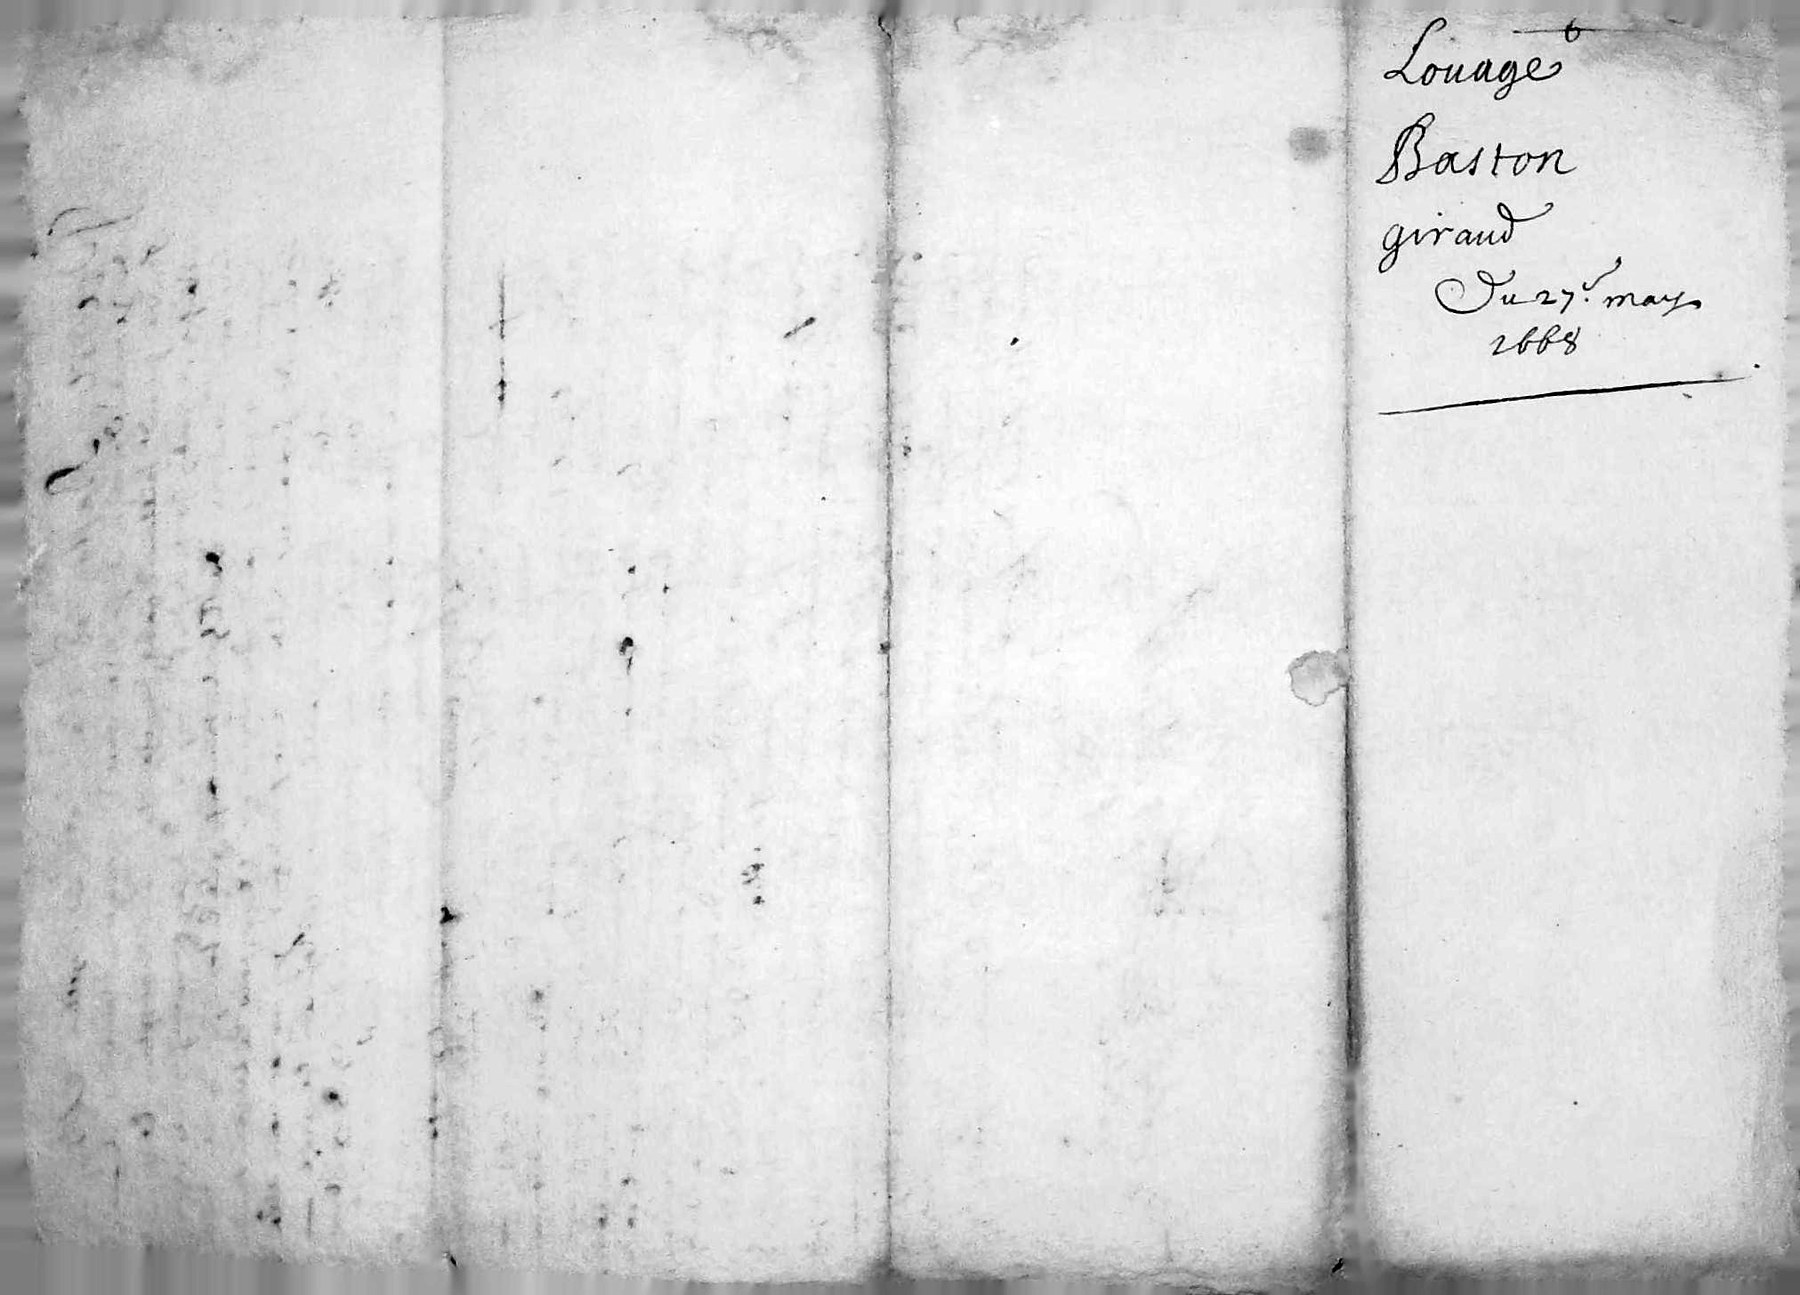 Louage
Baston
giraud
Du 27.e may
1668